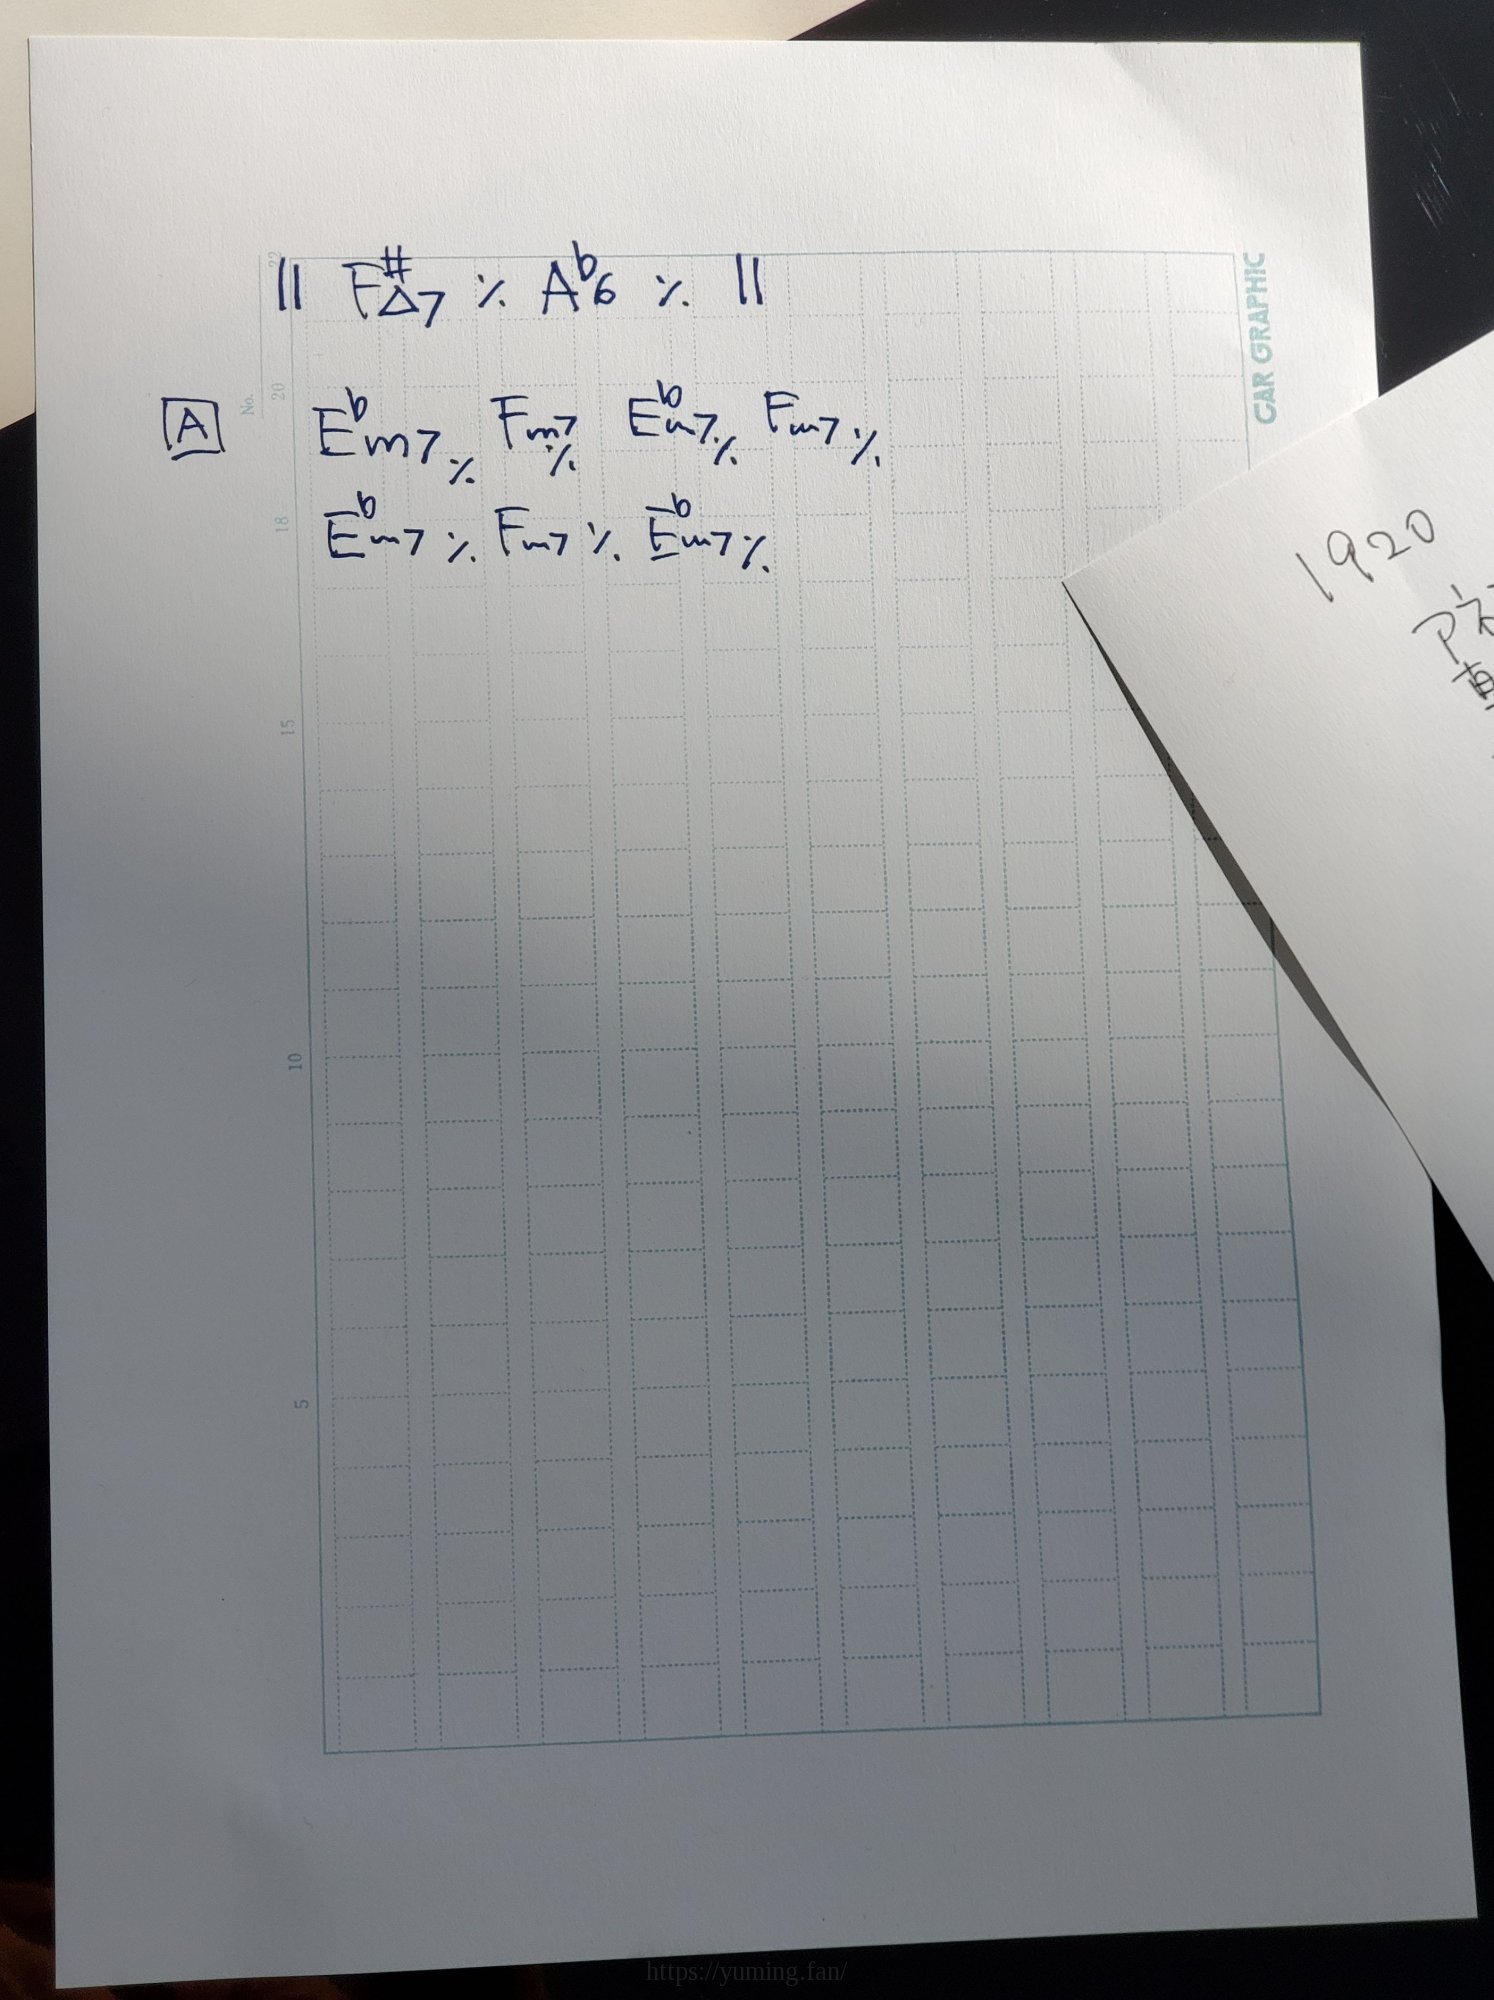 || F#△7 ٪ Ab6 ٪ ||
A Ebm7 ٪ Fm7 ٪ Ebm7 ٪ Fm7 ٪
Ebm7 ٪ Fm7 ٪ Ebm7 ٪
No.
22
20
18
15
10
5
CAR GRAPHIC
1920
https://yuming.fan/